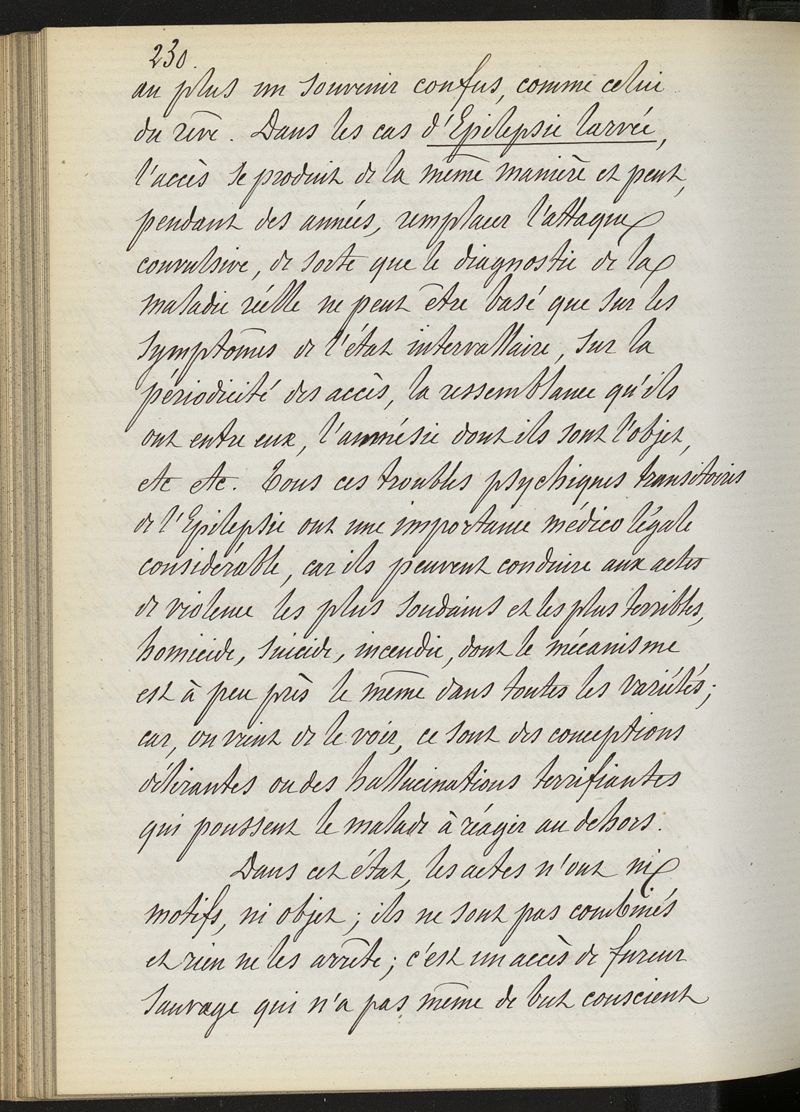 230.
au plus un souvenir confus, comme celui
du rêve. Dans les cas d'Epilepsie larvée,
l'accès se produit de la même manière et peut,
pendant des années, remplacer l'attaque
convulsive, de sorte que le diagnostic de la
maladie réelle ne peut être basé que sur les
symptômes de l'état intervallaire, sur la
périodicité des accès, la ressemblance qu'ils
ont entre eux, l'amnésie dont ils sont l'objet,
etc etc. Tous ces troubles psychiques transitoires
de l'Epilepsie ont une importance médico légale
considérable, car ils peuvent conduire aux actes
de violence les plus soudains et les plus terribles,
homicide, suicide, incendie, dont le mécanisme
est à peu près le même dans toutes les variétés;
car, on vient de le voir, ce sont des conceptions
délirantes ou des hallucinations terrifiantes
qui poussent le malade à réagir au dehors.
Dans cet état, les actes n'ont ni
motifs, ni objet; ils ne sont pas combinés
et rien ne les arrête; c'est un accès de fureur
sauvage qui n'a pas même de but conscient